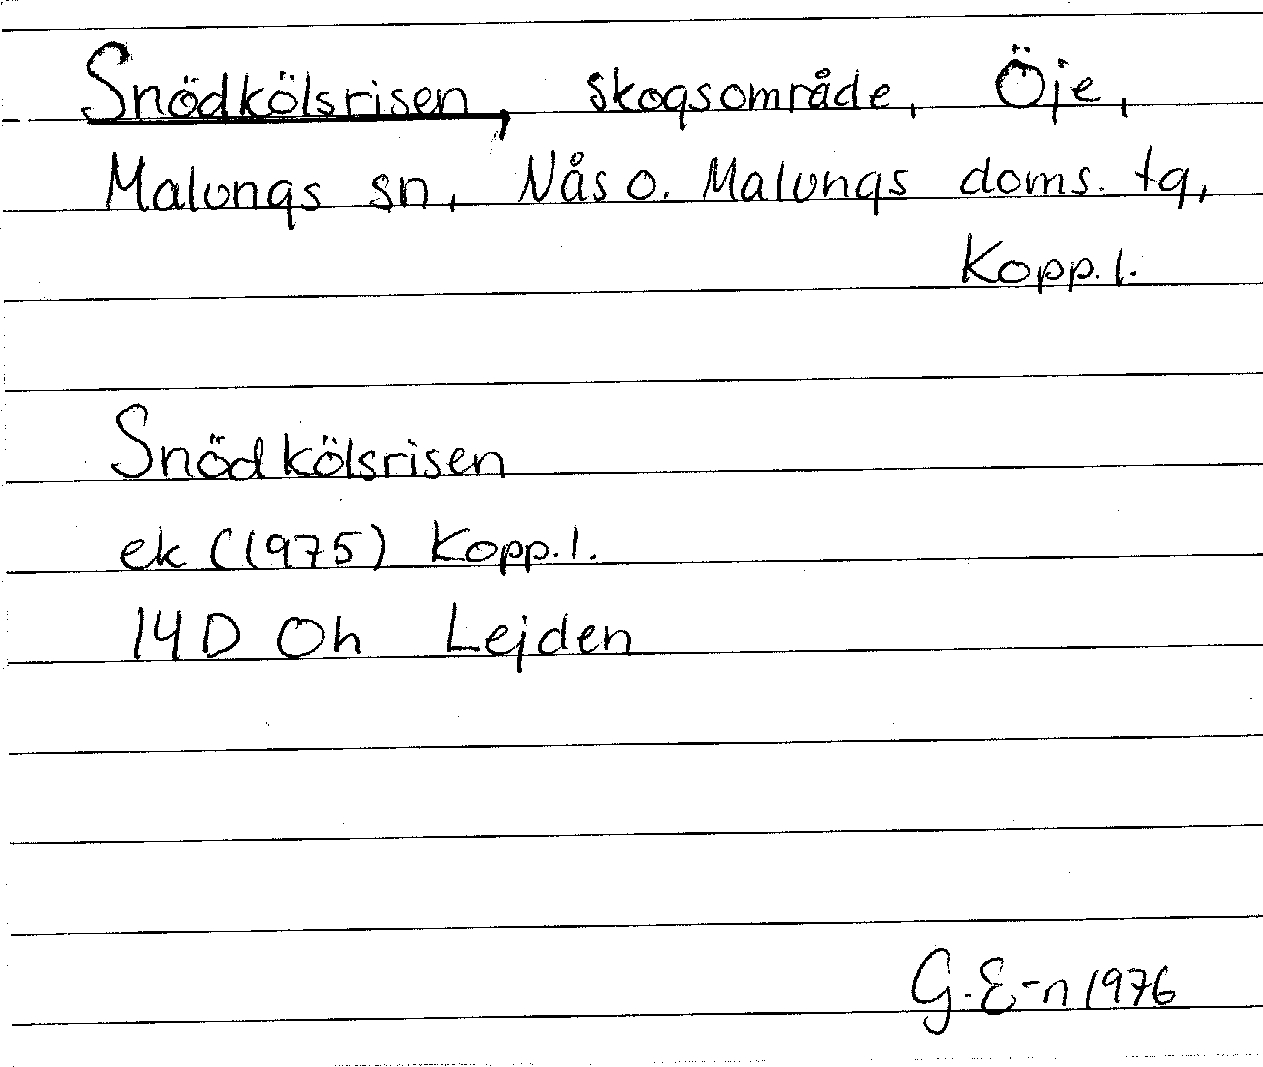 Snödkölsrisen, skogsområde, Öje,
Malungs sn, Nås o. Malungs doms. tg,
Kopp. l.
Snödkölsrisen
ek (1975) Kopp. l.
14D 0h Lejden
G. E-n 1976